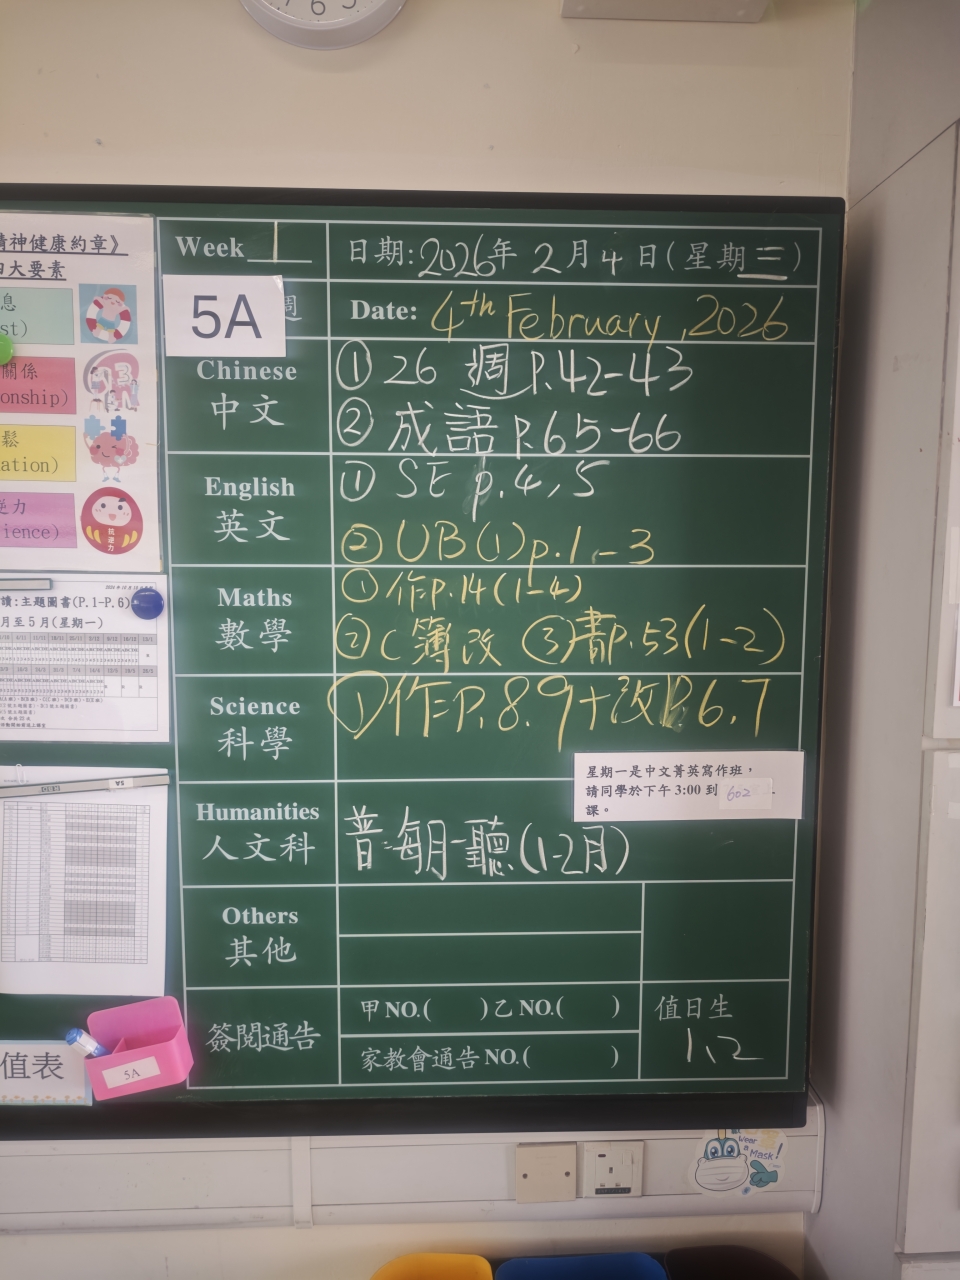 6
精神健康約章》
四大要素
息
st)
關係
onship)
鬆
ation)
逆力
ience)
抗逆力
讀:主題圖書(P.1-P.6)
月至5月(星期一)
值表
5A
5A
Week 1
日期:2026年2月4日(星期三)
5A
週
Date: 4th February, 2026
Chinese
中文
① 26 週 P.42-43
② 成語 P.65-66
English
英文
① SE p.4,5
② UB(1) p.1-3
Maths
數學
① 作P.14(1-4)
② C簿改 ③書P.53(1-2)
Science
科學
① 作P.8.9+改P.6.7
星期一是中文菁英寫作班，
請同學於下午3:00到 602 上
課。
Humanities
人文科
普:每月一聽(1-2月)
Others
其他
簽閱通告
甲NO.( )乙NO.( )
家教會通告NO.( )
值日生
1、2
Wear
a
Mask!